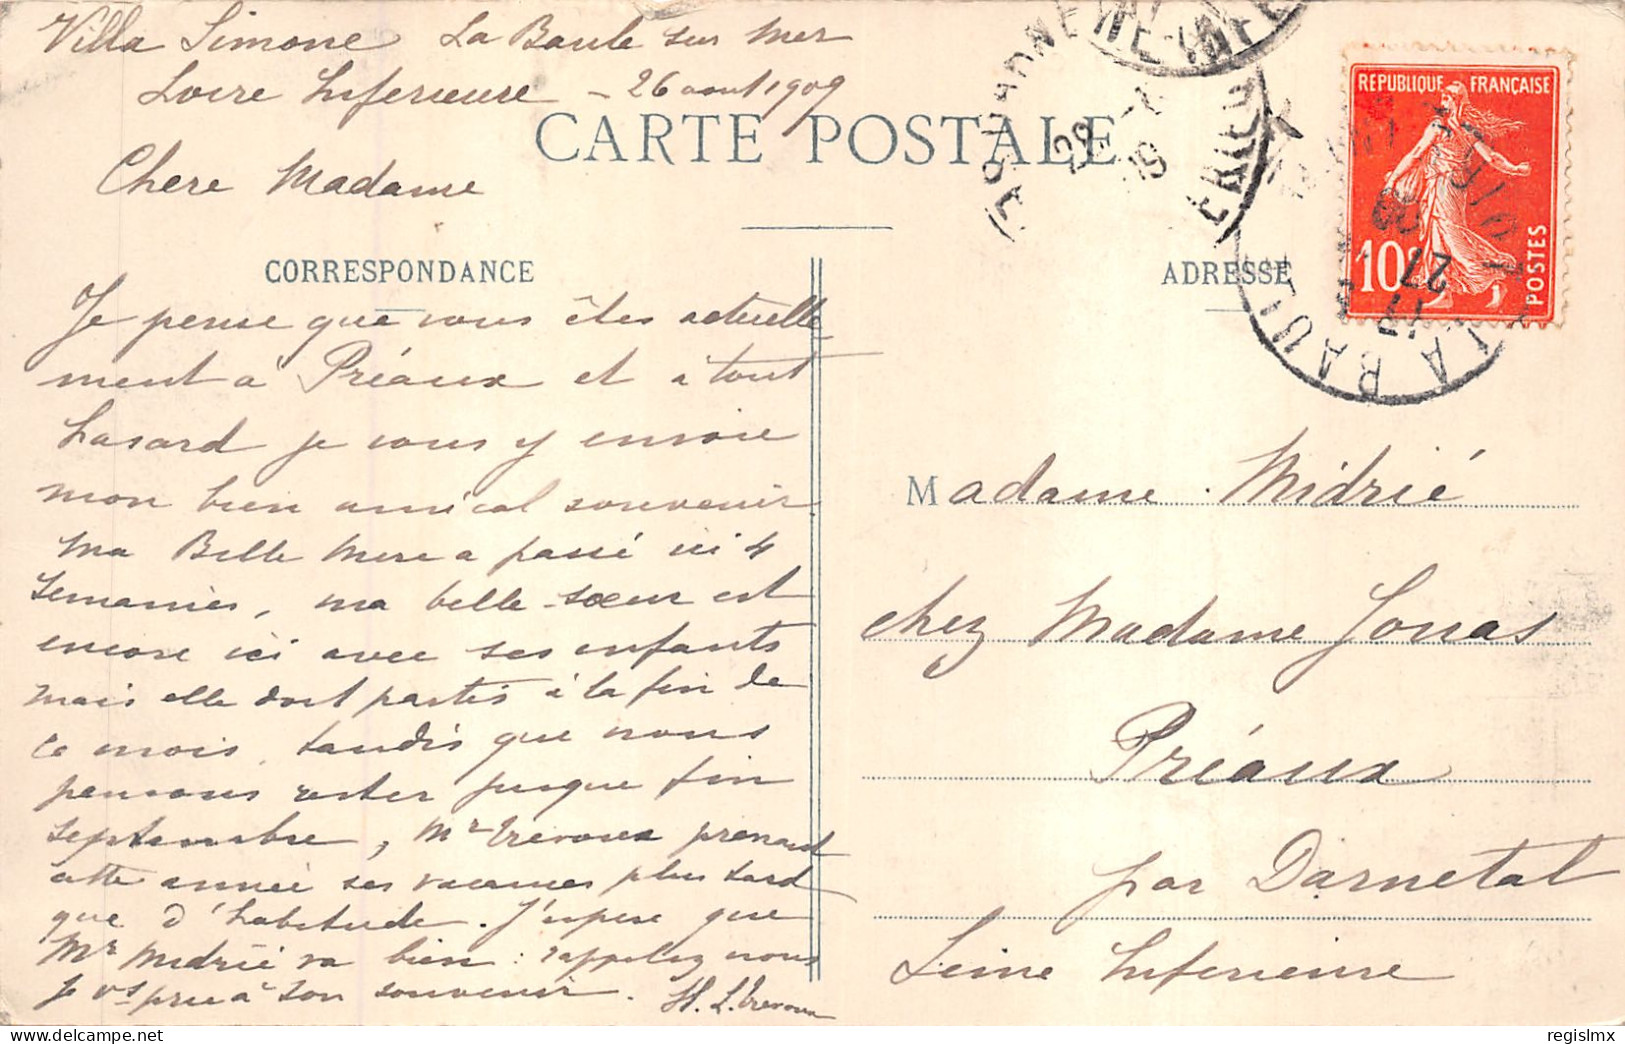 Villa Simone La Baule sur Mer
Loire Inferieure - 26 aout 1909
CARTE POSTALE
Chere Madame
CORRESPONDANCE
Je pense que vous êtes actuelle
ment à Préaux et à tout
hasard je vous y envoie
mon bien amical souvenir
Ma Belle Mere a passé ici 4
semaines, ma belle-sœur est
encore ici avec ses enfants
mais elle doit partir à la fin de
ce mois, tandis que nous
pensons rester jusque fin
septembre, Mr Trevoux prenant
cette année ses vacances plus tard
que d'habitude. J'espere que
Mr Midrié va bien : rappelez nous
je vs prie à son souvenir.
H. L. Trevoux
REPUBLIQUE FRANÇAISE
10c
POSTES
LA BAULE
27
09
ADRESSE
Madame Midrié
chez Madame Jonas
Préaux
par Darnetal
Seine Inferieure
www.delcampe.net
regislmx